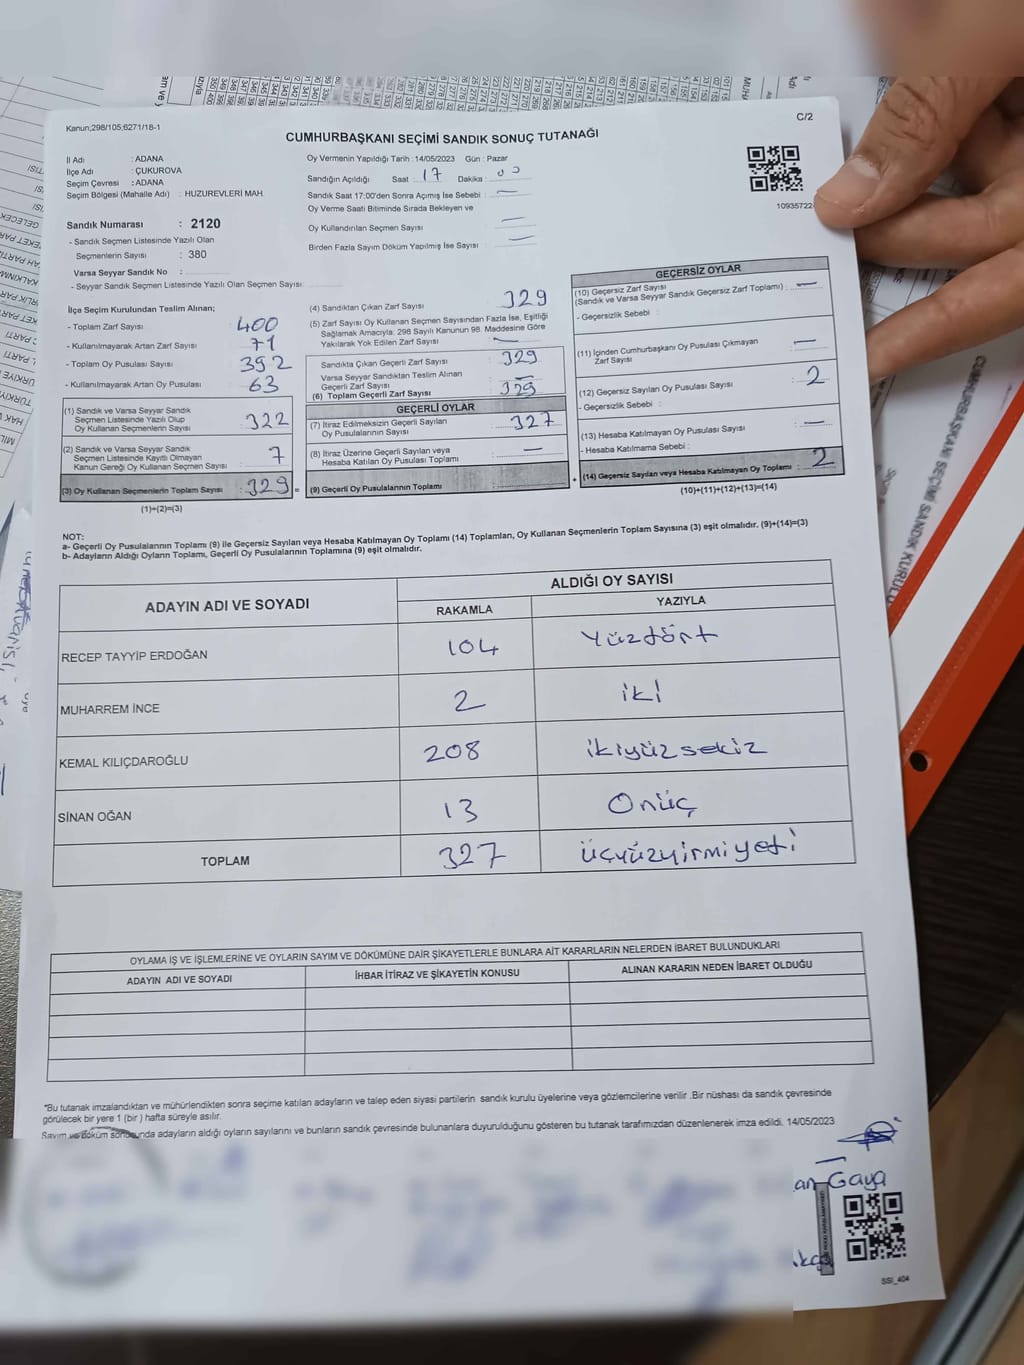 C/2
Kanun;298/105;6271/18-1
CUMHURBAŞKANI SEÇİMİ SANDIK SONUÇ TUTANAĞI
İl Adı : ADANA
İlçe Adı : ÇUKUROVA
Seçim Çevresi : ADANA
Seçim Bölgesi (Mahalle Adı) : HUZUREVLERİ MAH.
Sandık Numarası : 2120
- Sandık Seçmen Listesinde Yazılı Olan
Seçmenlerin Sayısı : 380
Varsa Seyyar Sandık No :
- Seyyar Sandık Seçmen Listesinde Yazılı Olan Seçmen Sayısı:
Oy Vermenin Yapıldığı Tarih : 14/05/2023 Gün : Pazar
Sandığın Açıldığı Saat : 17 Dakika :
Sandık Saat 17:00'den Sonra Açımış İse Sebebi : —
Oy Verme Saati Bitiminde Sırada Bekleyen ve
Oy Kullandırılan Seçmen Sayısı : —
Birden Fazla Sayım Döküm Yapılmış İse Sayısı : —
10935722
İlçe Seçim Kurulundan Teslim Alınan;
- Toplam Zarf Sayısı : 400
- Kullanılmayarak Artan Zarf Sayısı : 71
- Toplam Oy Pusulası Sayısı : 392
- Kullanılmayarak Artan Oy Pusulası : 63
(1) Sandık ve Varsa Seyyar Sandık
Seçmen Listesinde Yazılı Olup
Oy Kullanan Seçmenlerin Sayısı : 322
(2) Sandık ve Varsa Seyyar Sandık
Seçmen Listesinde Kayıtlı Olmayan
Kanun Gereği Oy Kullanan Seçmen Sayısı : 7
(3) Oy Kullanan Seçmenlerin Toplam Sayısı : 329 =
(1)+(2)=(3)
(4) Sandıktan Çıkan Zarf Sayısı : 329
(5) Zarf Sayısı Oy Kullanan Seçmen Sayısından Fazla İse, Eşitliği
Sağlamak Amacıyla; 298 Sayılı Kanunun 98. Maddesine Göre
Yakılarak Yok Edilen Zarf Sayısı : —
Sandıkta Çıkan Geçerli Zarf Sayısı : 329
Varsa Seyyar Sandıktan Teslim Alınan
Geçerli Zarf Sayısı : —
(6) Toplam Geçerli Zarf Sayısı : 329
GEÇERLİ OYLAR
(7) İtiraz Edilmeksizin Geçerli Sayılan
Oy Pusulalarının Sayısı : 327
(8) İtiraz Üzerine Geçerli Sayılan veya
Hesaba Katılan Oy Pusulası Toplamı : —
(9) Geçerli Oy Pusulalarının Toplamı : +
GEÇERSİZ OYLAR
(10) Geçersiz Zarf Sayısı
(Sandık ve Varsa Seyyar Sandık Geçersiz Zarf Toplamı) : —
- Geçersizlik Sebebi :
(11) İçinden Cumhurbaşkanı Oy Pusulası Çıkmayan
Zarf Sayısı : —
(12) Geçersiz Sayılan Oy Pusulası Sayısı : 2
- Geçersizlik Sebebi :
(13) Hesaba Katılmayan Oy Pusulası Sayısı : —
- Hesaba Katılmama Sebebi :
(14) Geçersiz Sayılan veya Hesaba Katılmayan Oy Toplamı : 2
(10)+(11)+(12)+(13)=(14)
NOT:
a- Geçerli Oy Pusulalarının Toplamı (9) ile Geçersiz Sayılan veya Hesaba Katılmayan Oy Toplamı (14) Toplamları, Oy Kullanan Seçmenlerin Toplam Sayısına (3) eşit olmalıdır. (9)+(14)=(3)
b- Adayların Aldığı Oyların Toplamı, Geçerli Oy Pusulalarının Toplamına (9) eşit olmalıdır.
ADAYIN ADI VE SOYADI
ALDIĞI OY SAYISI
RAKAMLA YAZIYLA
RECEP TAYYİP ERDOĞAN 104 Yüzdört
MUHARREM İNCE 2 iki
KEMAL KILIÇDAROĞLU 208 ikiyüz sekiz
SİNAN OĞAN 13 Onüç
TOPLAM 327 üçyüzyirmiyedi
OYLAMA İŞ VE İŞLEMLERİNE VE OYLARIN SAYIM VE DÖKÜMÜNE DAİR ŞİKAYETLERLE BUNLARA AİT KARARLARIN NELERDEN İBARET BULUNDUKLARI
ADAYIN ADI VE SOYADI İHBAR İTİRAZ VE ŞİKAYETİN KONUSU ALINAN KARARIN NEDEN İBARET OLDUĞU
*Bu tutanak imzalandıktan ve mühürlendikten sonra seçime katılan adayların ve talep eden siyasi partilerin sandık kurulu üyelerine veya gözlemcilerine verilir .Bir nüshası da sandık çevresinde
görülecek bir yere 1 (bir ) hafta süreyle asılır.
Sayım ve döküm sonucunda adayların aldığı oyların sayılarını ve bunların sandık çevresinde bulunanlara duyurulduğunu gösteren bu tutanak tarafımızdan düzenlenerek imza edildi. 14/05/2023
an Gaya
SSI_404
CUMHURBAŞKANI SEÇİMİ SANDIK KURULU